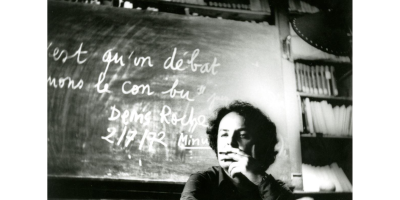 'est qu'on débat
nons le con bu",
Denis Roche
2/7/72 Minu